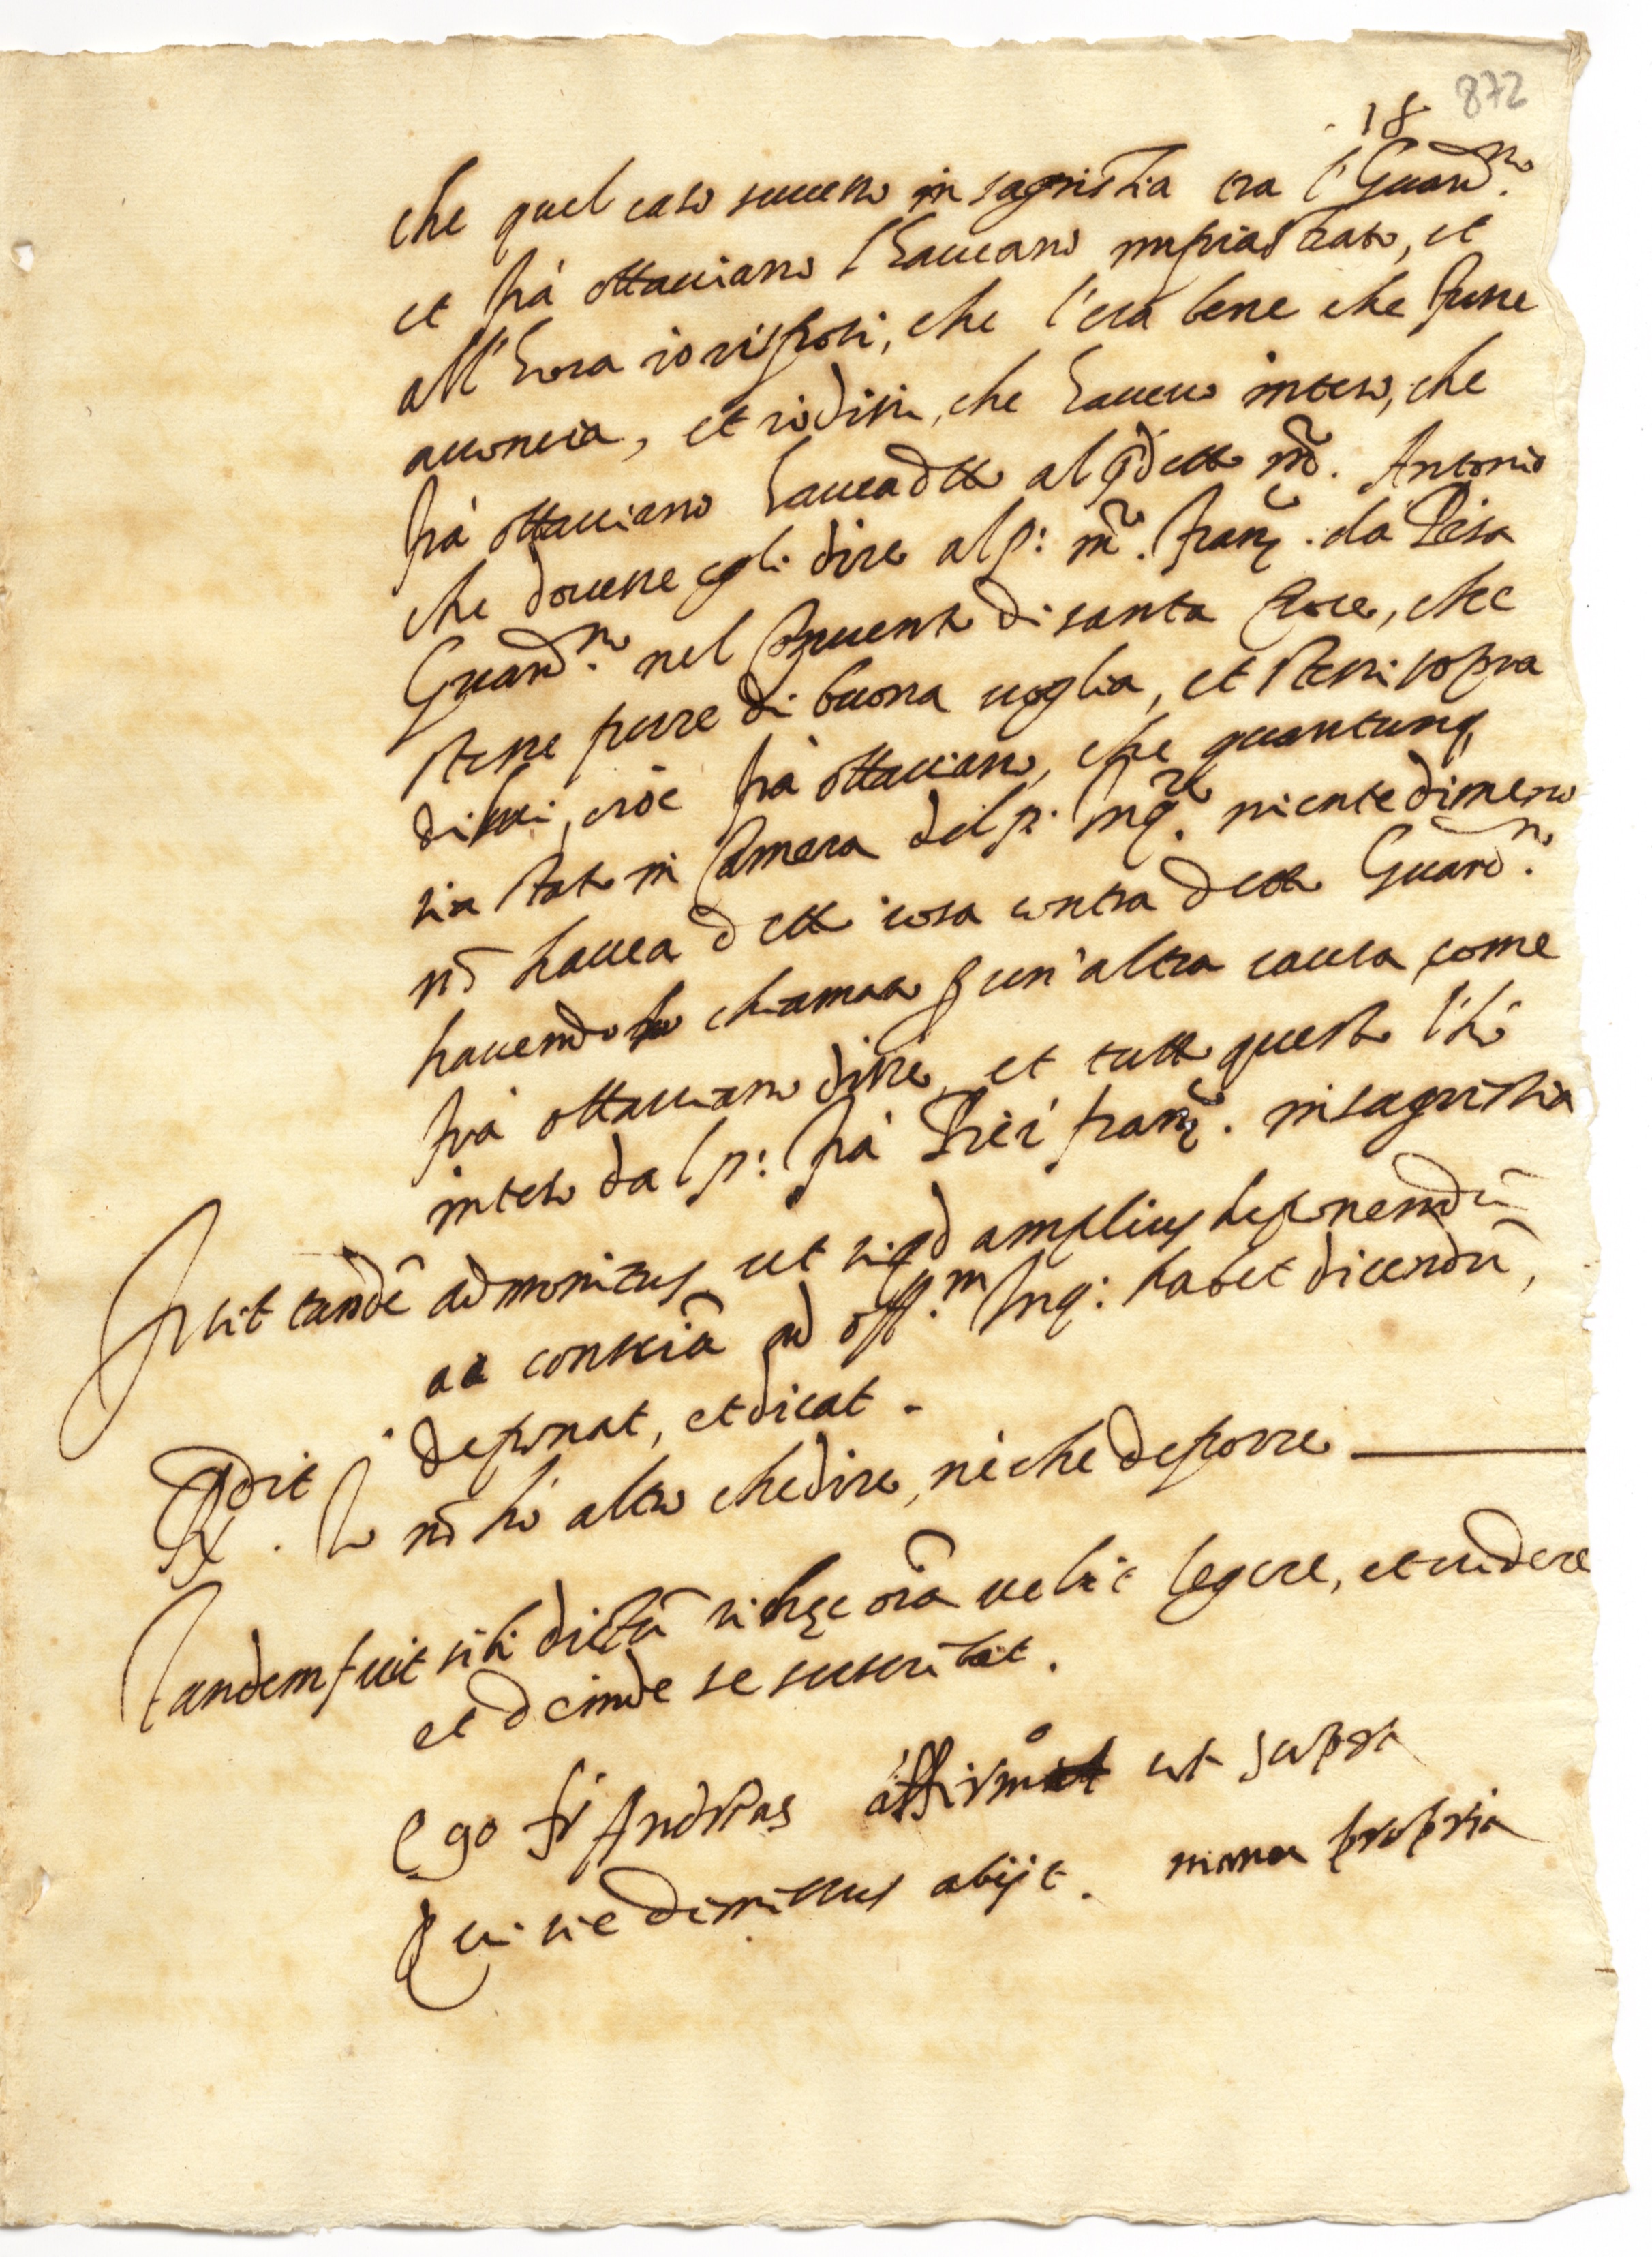 872
18
che quel caso successo in sagristia era l'Guard.no
et frà ottaviano l'haueano impiastrato, et
all'hora io risposi, che l'era bene che fusse
acconcia, et io dissi, che haueuo inteso, che
frà ottauiano hauea dtto al pdetto m̃o. Antonio
che douesse egli dire al p: m̃o. Franc.o da Pisa
Guard.no nel Conuento di santa Croce, che
stesse pure di buona uoglia, et stessi sopra
di lui, cioè frà ottauiano, che quantunq
sia stato in Camera del p. Inq.re nientedimeno
nõ hauea detto cosa contra detto Guard.no
hauendolo chiamato p un'altra causa, come
frà ottauiano disse, et tutto questo l'hò
inteso da l p: frà Piei franc.o in sagristia
Fuit tandẽ admonitus, ut si qd amplius deponendũ
ac consciã ad off.m Inq: habet dicendũ,
deponat, et dicat.
Rndit. Io nõ hò altro che dire, nè che deporre
Tandem fuit sibi dictũ si hęc oĩa uelit legere, et uidere
et deinde se suscribat.
Ego fr Andreas affirmo ut supra
manu propria
Qui sic dimissus abijt.